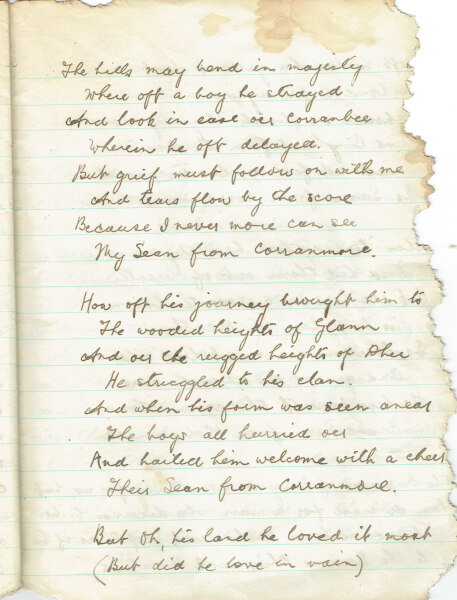 The hills may bend in magisty
Where oft a boy he strayed
And look in ease oer Corranbee
Wherein he oft delayed.
But grief must follow on with me
And tears flow by the score
Because I never more can see
My Sean from Corranmore.
How oft his journey brought him to
The wooded heights of Glann
And oer the rugged heights of Dhu
He struggled to his clan.
And when his form was seen anear
The boys all hurried oer
And hailed him welcome with a cheer
Their Sean from Corranmore.
But Oh, his land he loved it most
(But did he love in vain)